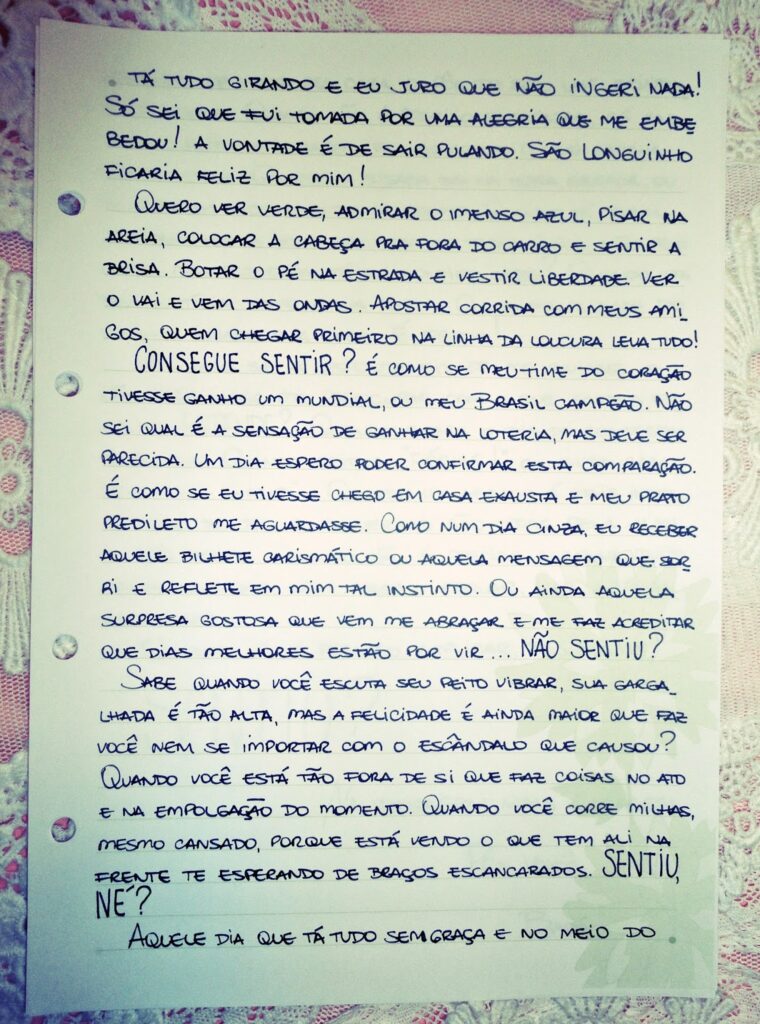 TÁ TUDO GIRANDO E EU JURO QUE NÃO INGERI NADA!
SÓ SEI QUE FUI TOMADA POR UMA ALEGRIA QUE ME EMBE
BEDOU! A VONTADE É DE SAIR PULANDO. SÃO LONGUINHO
FICARIA FELIZ POR MIM!
QUERO VER VERDE, ADMIRAR O IMENSO AZUL, PISAR NA
AREIA, COLOCAR A CABEÇA PRA FORA DO CARRO E SENTIR A
BRISA. BOTAR O PÉ NA ESTRADA E VESTIR LIBERDADE. VER
O VAI E VEM DAS ONDAS. APOSTAR CORRIDA COM MEUS AMI_
GOS, QUEM CHEGAR PRIMEIRO NA LINHA DA LOUCURA LEVA TUDO!
CONSEGUE SENTIR? É COMO SE MEU TIME DO CORAÇÃO
TIVESSE GANHO UM MUNDIAL, OU MEU BRASIL CAMPEÃO. NÃO
SEI QUAL É A SENSAÇÃO DE GANHAR NA LOTERIA, MAS DEVE SER
PARECIDA. UM DIA ESPERO PODER CONFIRMAR ESTA COMPARAÇÃO.
É COMO SE EU TIVESSE CHEGO EM CASA EXAUSTA E MEU PRATO
PREDILETO ME AGUARDASSE. COMO NUM DIA CINZA, EU RECEBER
AQUELE BILHETE CARISMÁTICO OU AQUELA MENSAGEM QUE SOR
RI E REFLETE EM MIM TAL INSTINTO. OU AINDA AQUELA
SURPRESA GOSTOSA QUE VEM ME ABRAÇAR E ME FAZ ACREDITAR
QUE DIAS MELHORES ESTÃO POR VIR... NÃO SENTIU?
SABE QUANDO VOCÊ ESCUTA SEU PEITO VIBRAR, SUA GARGA_
LHADA É TÃO ALTA, MAS A FELICIDADE É AINDA MAIOR QUE FAZ
VOCÊ NEM SE IMPORTAR COM O ESCÂNDALO QUE CAUSOU?
QUANDO VOCÊ ESTÁ TÃO FORA DE SI QUE FAZ COISAS NO ATO
E NA EMPOLGAÇÃO DO MOMENTO. QUANDO VOCÊ CORRE MILHAS,
MESMO CANSADO, PORQUE ESTÁ VENDO O QUE TEM ALI NA
FRENTE TE ESPERANDO DE BRAÇOS ESCANCARADOS. SENTIU,
NÉ?
AQUELE DIA QUE TÁ TUDO SEM GRAÇA E NO MEIO DO